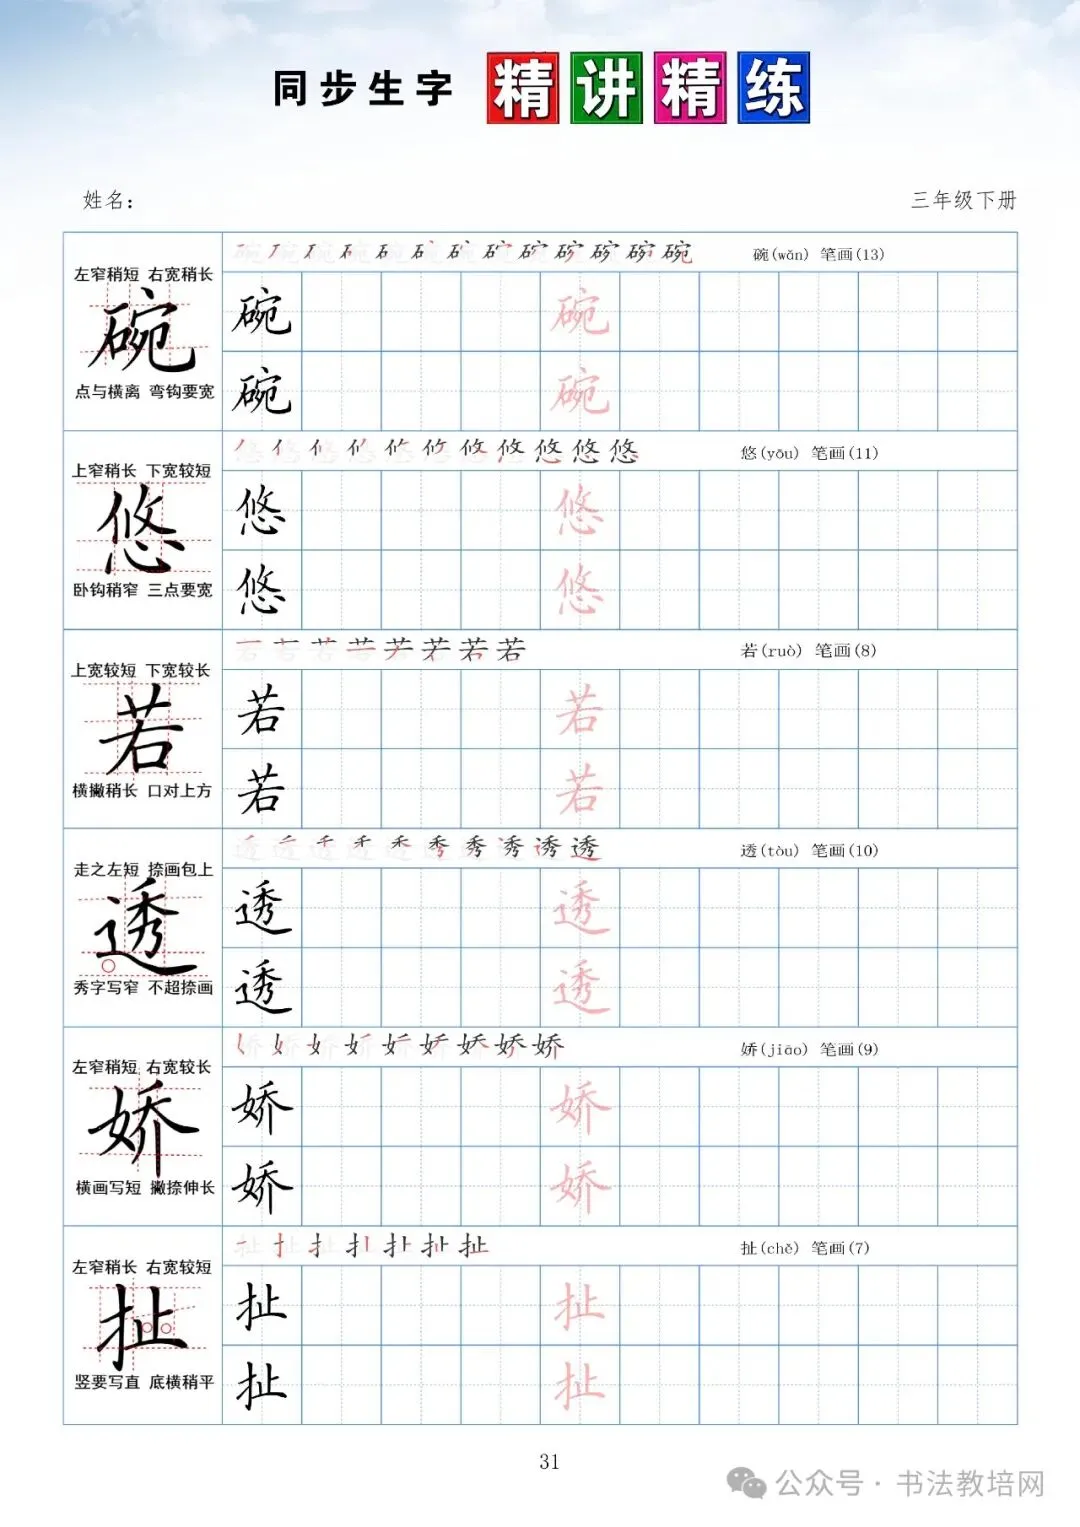 同步生字 精讲精练
姓名：
三年级下册
左窄稍短 右宽稍长
碗
点与横离 弯钩要宽
碗(wǎn) 笔画(13)
碗 碗
碗 碗
上窄稍长 下宽较短
悠
卧钩稍窄 三点要宽
悠(yōu) 笔画(11)
悠 悠
悠 悠
上宽较短 下宽较长
若
横撇稍长 口对上方
若(ruò) 笔画(8)
若 若
若 若
走之左短 捺画包上
透
秀字写窄 不超捺画
透(tòu) 笔画(10)
透 透
透 透
左窄稍短 右宽较长
娇
横画写短 撇捺伸长
娇(jiāo) 笔画(9)
娇 娇
娇 娇
左窄稍长 右宽较短
扯
竖要写直 底横稍平
扯(chě) 笔画(7)
扯 扯
扯 扯
31
公众号·书法教培网